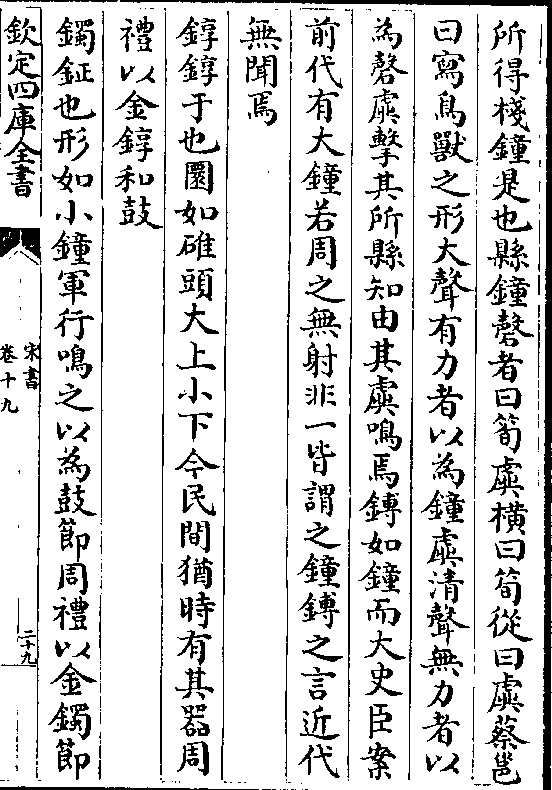 所得棧鐘是也縣鐘磬者曰筍虡橫曰筍從曰虡蔡邕
曰寫鳥獸之形大聲有力者以為鐘虡清聲無力者以
為磬虡擊其所縣知由其虡鳴焉鏄如鐘而大史臣案
前代有大鐘若周之無射非一皆謂之鐘鏄之言近代
無聞焉
錞錞于也圜如碓頭大上小下今民間猶時有其器周
禮以金錞和鼓
鐲鉦也形如小鐘軍行鳴之以為鼓節周禮以金鐲節
欽定四庫全書
宋書
卷十九
二十九